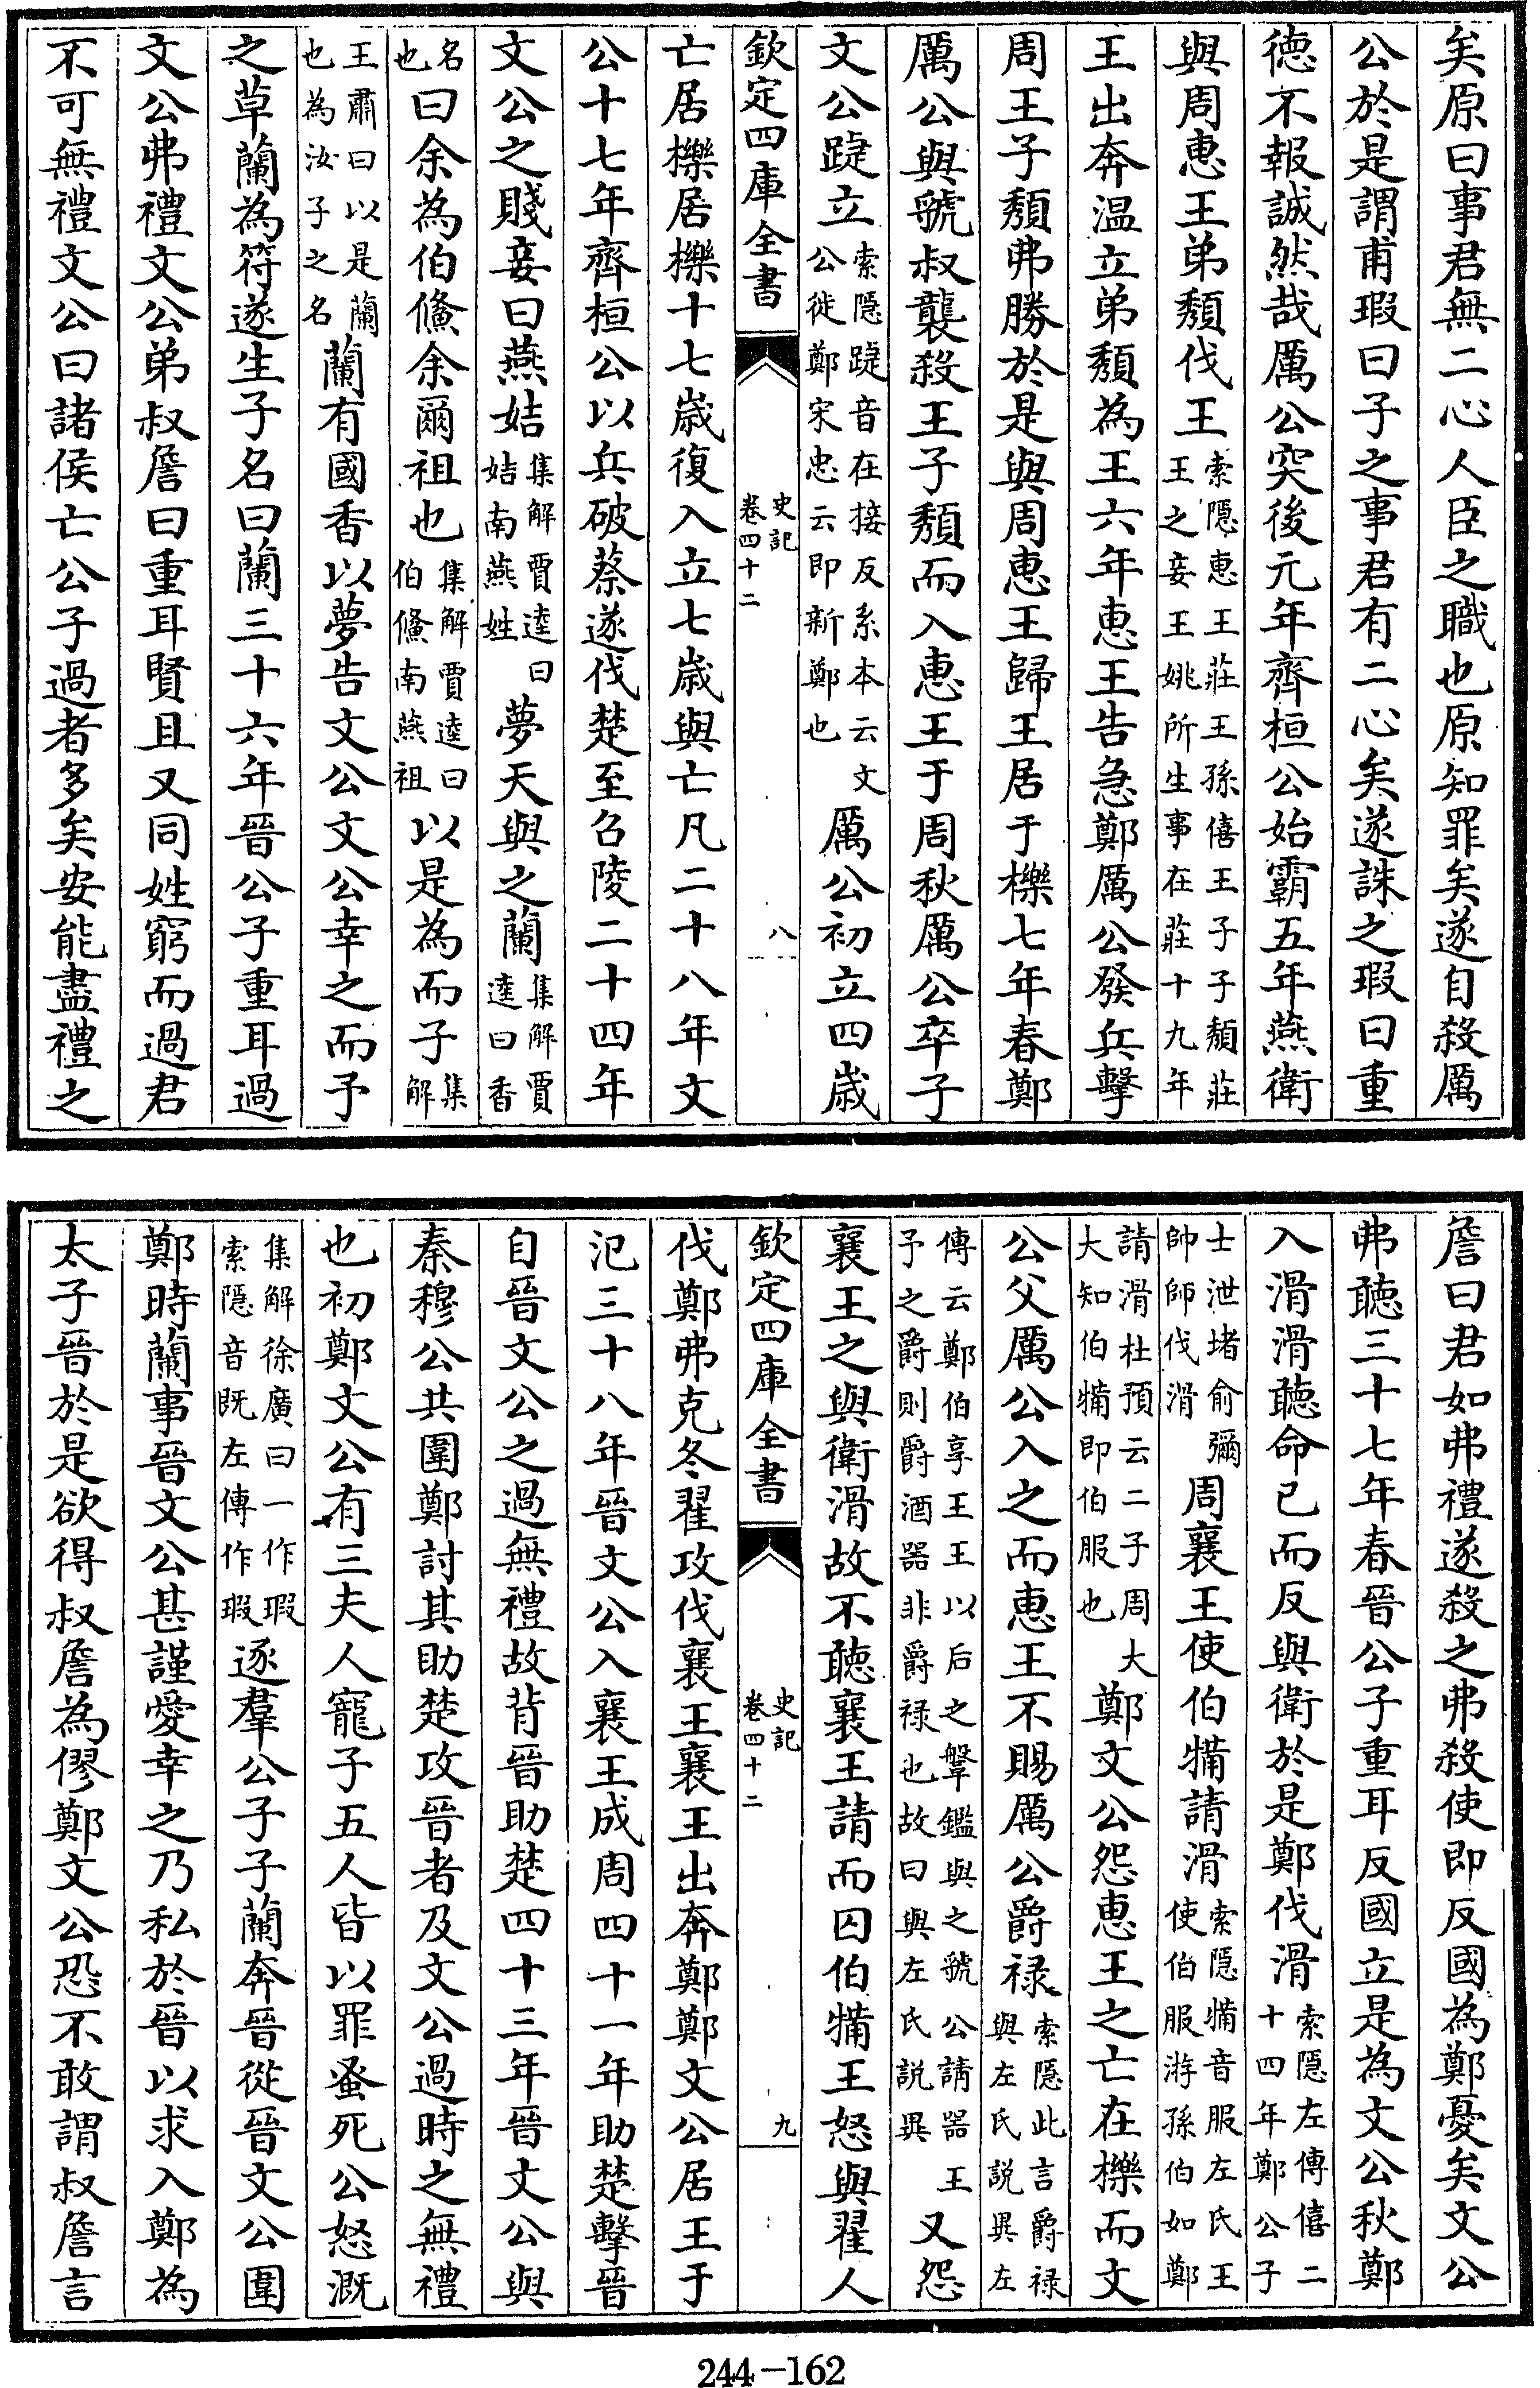 矣原曰事君無二心人臣之職也原知罪矣遂自殺厲
公於是謂甫瑕曰子之事君有二心矣遂誅之瑕曰重
德不報誠然哉厲公突後元年齊桓公始霸五年燕衛
與周惠王弟頹伐王索隱惠王莊王孫僖王子子頹莊王之妾王姚所生事在莊十九年
王出奔温立弟頹為王六年惠王告急鄭厲公發兵擊
周王子頹弗勝於是與周惠王歸王居于櫟七年春鄭
厲公與虢叔襲殺王子頹而入惠王于周秋厲公卒子
文公踕立索隱踕音在接反系本云文公徙鄭宋忠云即新鄭也厲公初立四歳
欽定四庫全書 史記卷四十二 八
亡居櫟居櫟十七歳復入立七歳與亡凡二十八年文
公十七年齊桓公以兵破蔡遂伐楚至召陵二十四年
文公之賤妾曰燕姞集解賈逵曰姞南燕姓夢天與之蘭集解賈逵曰香
名也曰余為伯鯈余爾祖也集解賈逵曰伯鯈南燕祖以是為而子集解
王肅曰以是蘭也為汝子之名蘭有國香以夢告文公文公幸之而予
之草蘭為符遂生子名曰蘭三十六年晉公子重耳過
文公弗禮文公弟叔詹曰重耳賢且又同姓窮而過君
不可無禮文公曰諸侯亡公子過者多矣安能盡禮之
詹曰君如弗禮遂殺之弗殺使即反國為鄭憂矣文公
弗聽三十七年春晉公子重耳反國立是為文公秋鄭
入滑滑聽命已而反與衛於是鄭伐滑索隱左傳僖二十四年鄭公子
士泄堵俞彌帥師伐滑周襄王使伯犕請滑索隱犕音服左氏王使伯服游孫伯如鄭
請滑杜預云二子周大大知伯犕即伯服也鄭文公怨惠王之亡在櫟而文
公父厲公入之而惠王不賜厲公爵禄索隱此言爵禄與左氏說異左
傳云鄭伯享王王以后之鞶鑑與之虢公請器王予之爵則爵酒器非爵禄也故曰與左氏説異又怨
襄王之與衛滑故不聽襄王請而囚伯犕王怒與翟人
欽定四庫全書 史記卷四十二 九
伐鄭弗克冬翟攻伐襄王襄王出奔鄭鄭文公居王于
氾三十八年晉文公入襄王成周四十一年助楚擊晉
自晉文公之過無禮故背晉助楚四十三年晉文公與
秦穆公共圍鄭討其助楚攻晉者及文公過時之無禮
也初鄭文公有三夫人寵子五人皆以罪蚤死公怒溉
集解徐廣曰一作瑕索隱音既左傳作瑕逐羣公子子蘭奔晉從晉文公圍
鄭時蘭事晉文公甚謹愛幸之乃私於晉以求入鄭為
太子晉於是欲得叔詹為僇鄭文公恐不敢謂叔詹言
244-162